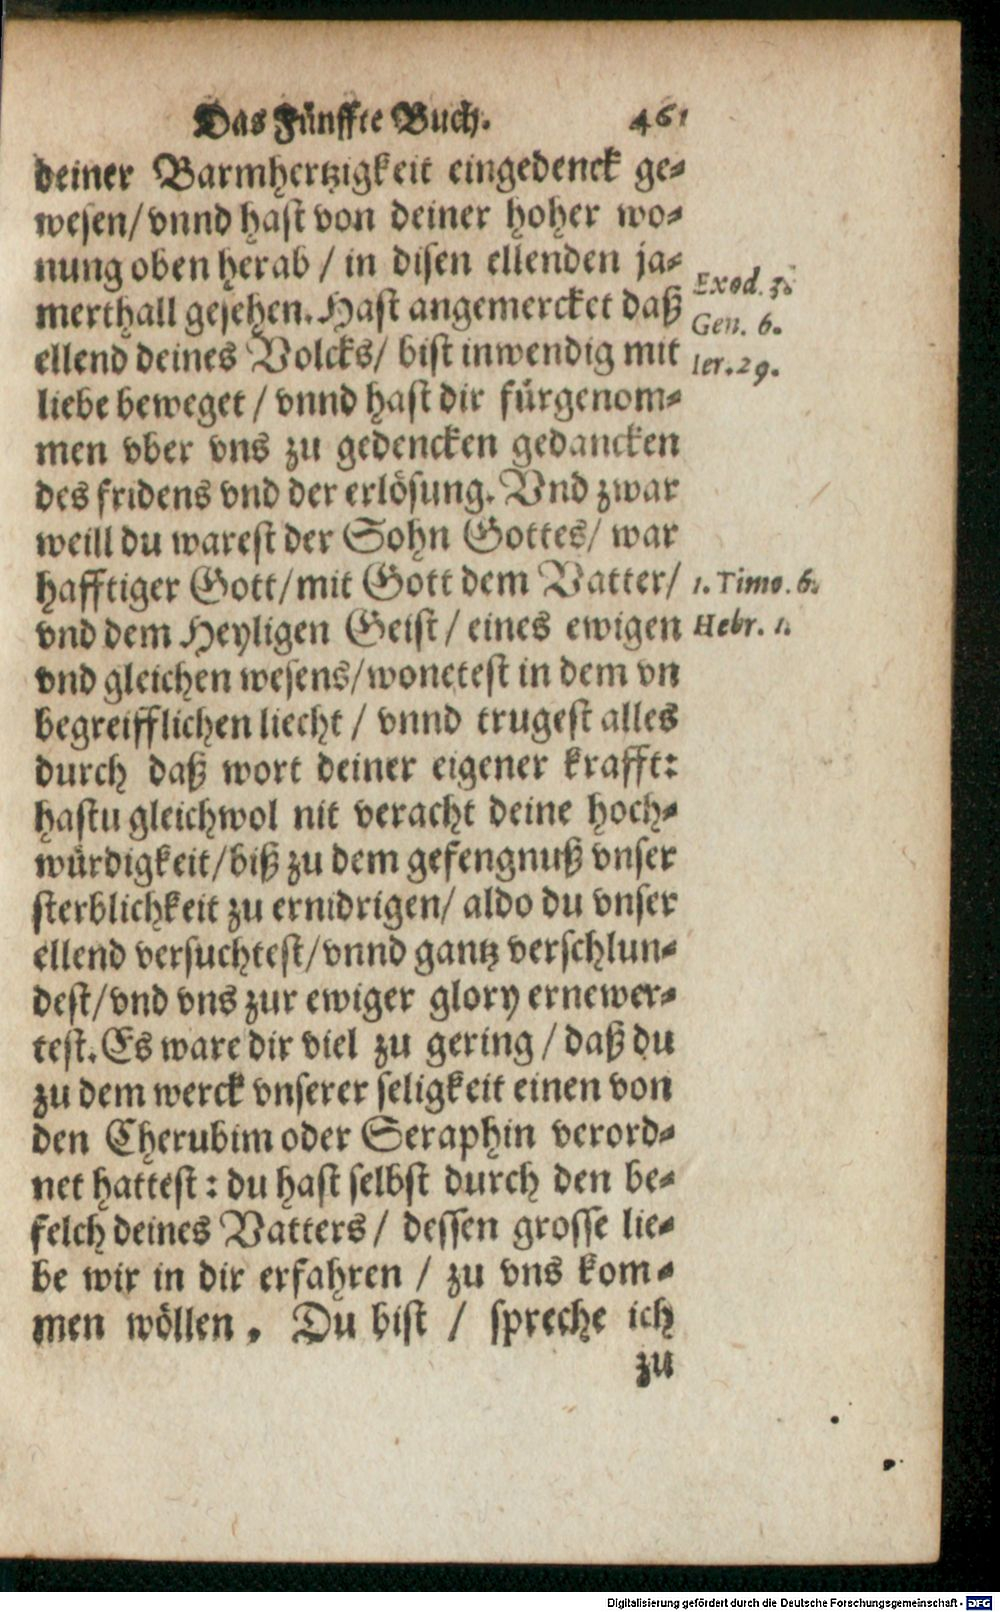 Das Fünffte Buch. 461
deiner Barmhertzigkeit eingedenck ge-
wesen/ vnnd hast von deiner hoher wo-
nung oben herab / in disen ellenden ja-
merthall gesehen. Hast angemercket daß
ellend deines Volcks/ bist inwendig mit
liebe beweget / vnnd hast dir fürgenom-
men vber vns zu gedencken gedancken
des fridens vnd der erlösung. Vnd zwar
weill du warest der Sohn Gottes/ war
hafftiger Gott/ mit Gott dem Vatter/
vnd dem Heyligen Geist / eines ewigen
vnd gleichen wesens/ wonetest in dem vn
begreifflichen liecht / vnnd trugest alles
durch daß wort deiner eigener krafft:
hastu gleichwol nit veracht deine hoch-
würdigkeit/ biß zu dem gefengnuß vnser
sterblichkeit zu ernidrigen/ aldo du vnser
ellend versuchtest/ vnnd gantz verschlun-
dest/ vnd vns zur ewiger glory ernewer-
test. Es ware dir viel zu gering / daß du
zu dem werck vnserer seligkeit einen von
den Cherubim oder Seraphin verord-
net hattest: du hast selbst durch den be-
felch deines Vatters / dessen grosse lie-
be wir in dir erfahren / zu vns kom-
men wöllen. Du bist / spreche ich
zu
Exod. 3.
Gen. 6.
Ier. 29.
1. Timo. 6.
Hebr. 1.
Digitalisierung gefördert durch die Deutsche Forschungsgemeinschaft - DFG